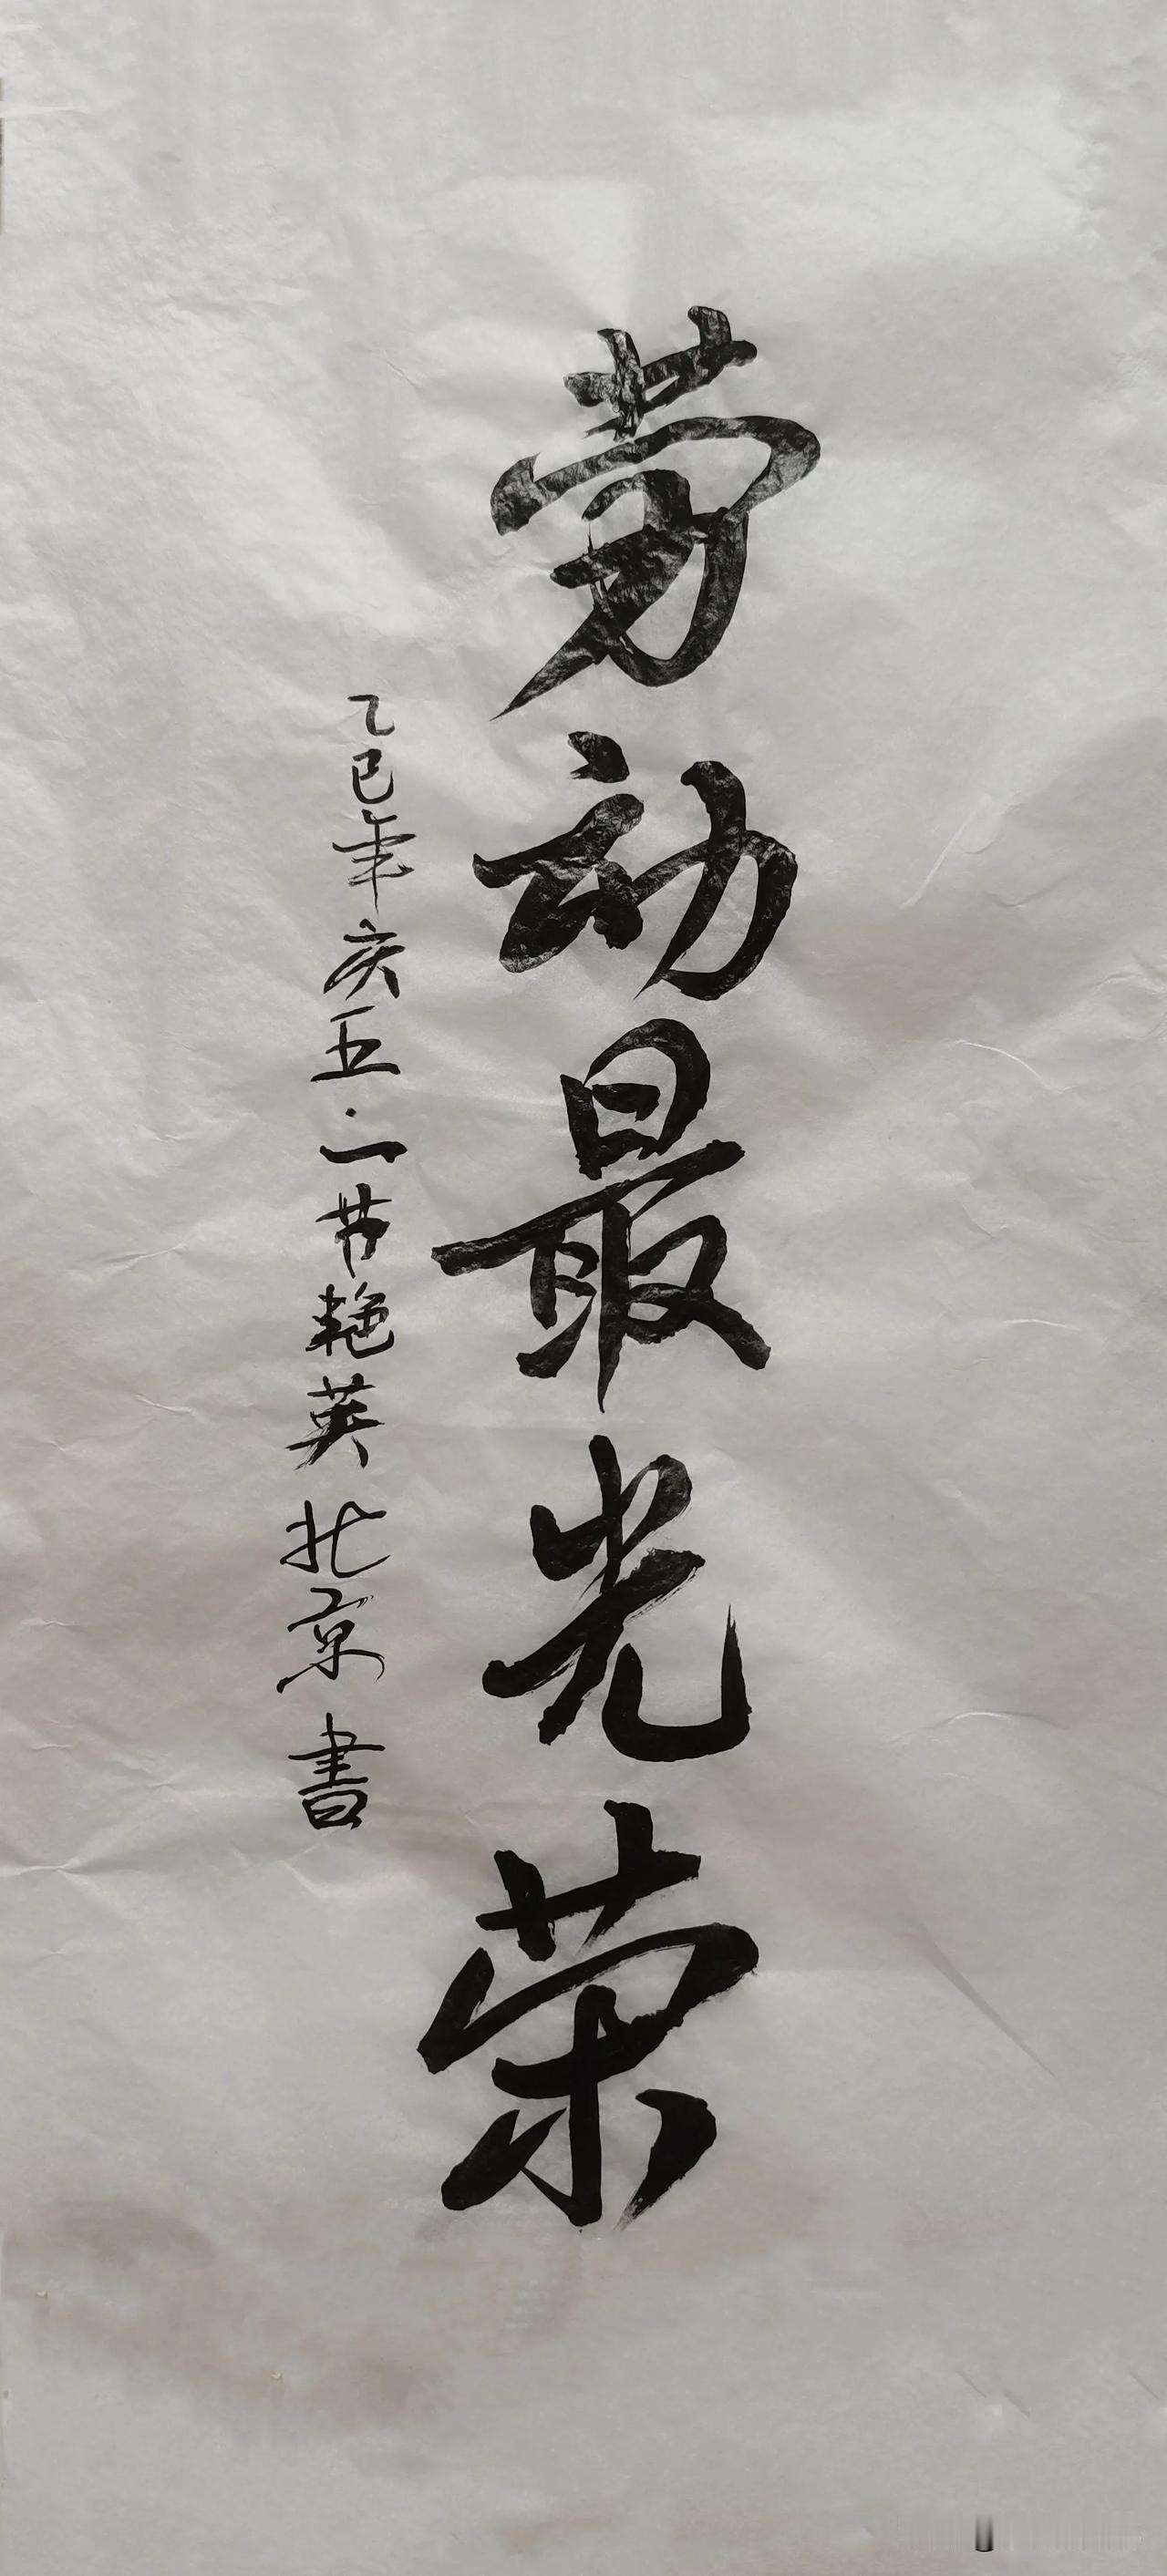 劳动最光荣
乙巳年庆五·一节艳英北京書